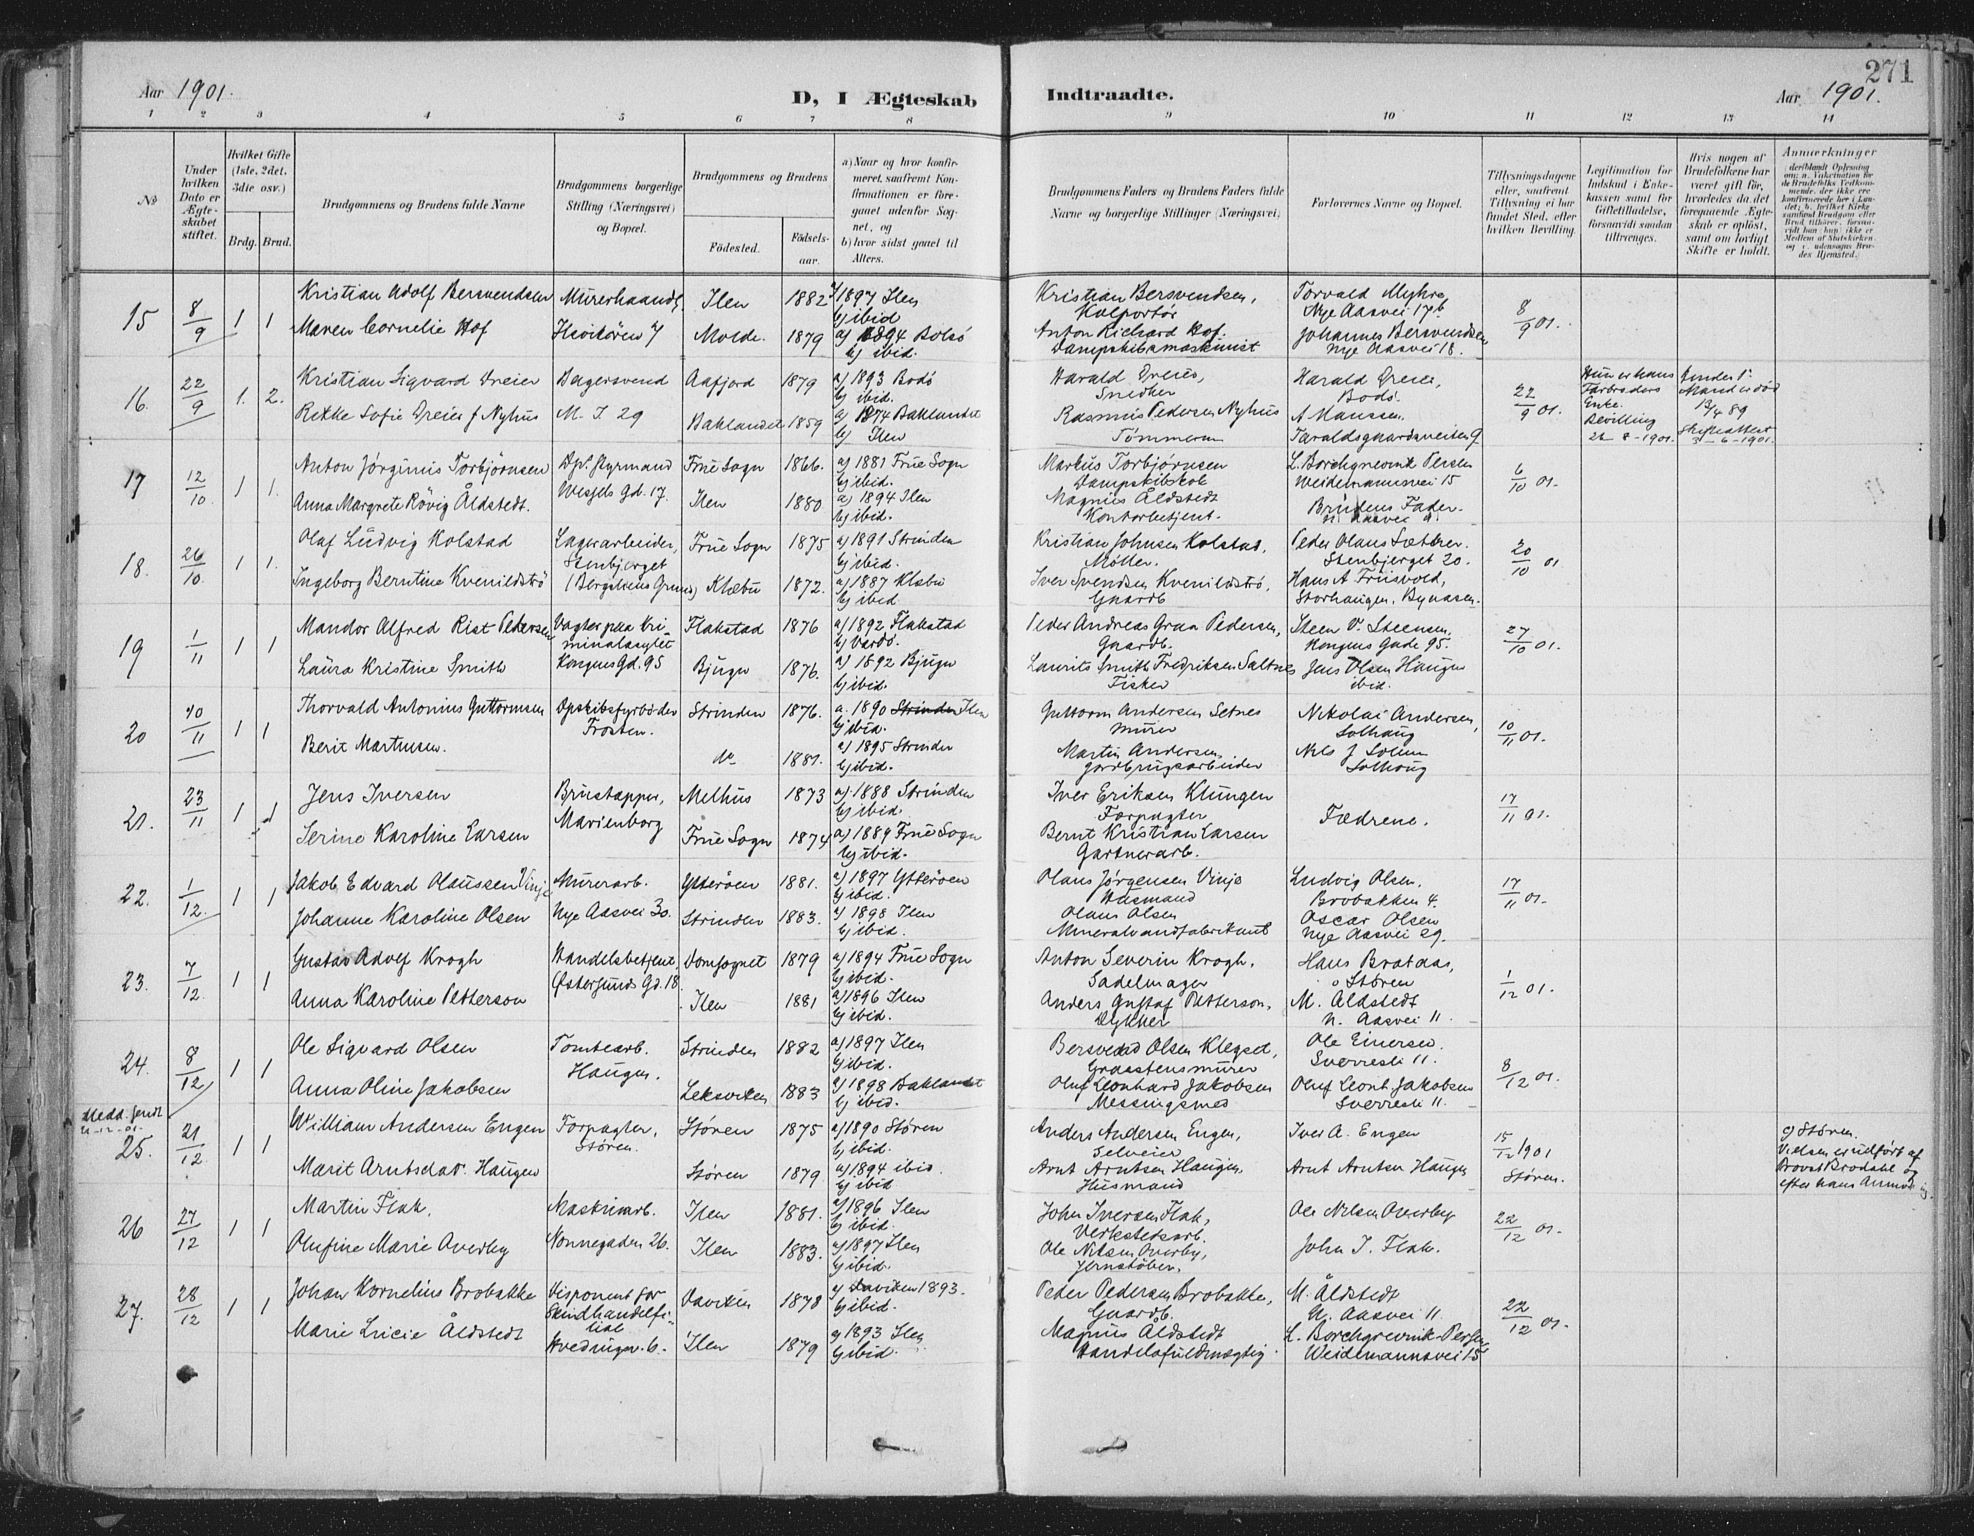 Aar 1901.
D, I Ægteskab
Indtraadte.
Aar 1901.
271
1 2 3 4 5 6 7 8 9 10 11 12 13 14
No
Under hvilken Dato er Ægteskabet stiftet.
Hvilket Gifte (1ste, 2det, 3die osv.)
Brdg. Brud.
Brudgommens og Brudens fulde Navne
Brudgommens borgerlige Stilling (Næringsvei) og Bopæl.
Brudgommens og Brudens
Födested.
Födselsaar.
a) Naar og hvor konfirmeret, saafremt Konfirmationen er foregaaet udenfor Sognet, og
b) hvor sidst gaaet til Alters.
Brudgommens Faders og Brudens Faders fulde Navne og borgerlige Stillinger (Næringsvei)
Forlovernes Navne og Bopæl.
Tillysningsdagene eller, saafremt Tillysning ei har fundet Sted, efter hvilken Bevilling.
Legitimation for Indskud i Enkekassen samt for Giftetilladelse, forsaavidt saadan tiltrænges.
Hvis nogen af Brudefolkene har været gift för, hvorledes da det foregaaende Ægteskab er oplöst, samt om lovligt Skifte er holdt.
Anmærkninger
15 8/9 1 1
Kristian Adolf Bersvendsen
Ilen 1882 1897 Ilen b) ibid
Maren Cornelie Hof
Molde. 1879 a) 1894 Bolsö b) ibid.
Kristian Bersvendsen, Kolportör
Anton Richard Hof. Dampskibsmaskinist
Torvald Myhre Nye Aasvei 17b
Johannes Bersvendsen Nye Aasvei 18.
8/9 01.
16. 22/9 1. 2.
Kristian Sigvard Dreier
Bagersvend
Aafjord 1879 a) 1893 Bodö b) ibid.
Rikke Sofie Dreier f. Nyhus
M. I 29
Baklandet 1859 a) 1874 Baklandet b) Ilen
Harald Dreier, Snedker
Rasmus Pedersen Nyhus Tömmerm
Harald Dreier, Bodö.
A Hanssen. Taraldsgaardsveiten 9
22/9 01.
Hun er hans Farbroders Enke. Bevilling 22-8-1901.
Mand er död 13/4 89 Skifteattest 3-6-1901.
17 12/10 1 1.
Anton Jörginus Torbjörnsen
Dpf. styrmand
Frue Sogn 1866. a) 1881 Frue Sogn b) ibid.
Anna Margrete Rövig Åldstedt.
Wessels Gd. 17.
Ilen 1880 a) 1894 Ilen b) ibid.
Markus Torbjörnsen Dampskibskok
Magnus Åldstedt Kontorbetjent.
L. Borchgrevink Persen Weidemannsvei 15
Brudens Fader. N. Aasvei 11.
6/10 01.
18. 26/10 1 1.
Olaf Ludvig Kolstad
Lagerarbeider, Stenbjerget
Frue Sogn 1875 a) 1891 Strinden b) ibid.
Ingeborg Berntine Kvenildströ
Klæbu 1872. a) 1887 Klæbu b) ibid
Kristian Johnsen Kolstad, Möller.
Iver Svendsen Kvenildströ, Gaardb
Peder Olaus Sættrer. Stenbjerget 20.
Hans A Friisvold, Storhaugen, Bynæsen.
20/10 01
19 1/11 1 1
Mandor Alfred Rist Pedersen
Vagter paa Kriminalasylet
Flakstad 1876 a) 1892 Flakstad b) Vardö.
Laura Kristine Smith
Kongens Gd. 95
Bjugn 1876. a) 1892 Bjugn b) ibid.
Peder Andreas Graa Pedersen, Gaardb.
Laurits Smith Fredriksen Saltnes Fisker
Steen V. Steensen, Kongens Gade 95.
Jens Olsen Haugen ibid.
27/10 01.
20 10/11 1 1
Thorvald Antonius Guttormsen
Dpskibsfyrböder Frosten.
Strinden 1876. a. 1890 Strinden Ilen b) ibid.
Berit Martinsen.
do 1881. a) 1895 Strinden b) ibid.
Guttorm Andersen Setnes Murer
Martin Andersen, Jordbrugsarbeider
Nikolai Andersen, Solhaug
Nils J Solem Solhaug
10/11 01.
21. 23/11 1 1
Jens Iversen
Brustapper, Marienborg
Melhus 1873 a) 1888 Strinden b) ibid.
Serine Karoline Larsen
Frue Sogn 1874 a) 1889 Frue Sogn b) ibid.
Iver Eriksen Klungen Forpagter
Bernt Kristian Larsen Gartnerarb.
Fædrene.
17/11 01.
22. 1/12 1 1
Jakob Edvard Olaussen Vinje
Murerarb.
Ytteröen 1881. a) 1897 Ytteröen b) ibid.
Johanne Karoline Olsen
Nye Aasvei 30.
Strinden 1883. a) 1898 Ilen b) ibid.
Olaus Jörgensen Vinje Husmand
Olaus Olsen Mineralvandfabrikant
Ludvig Olsen. Brobakken 4.
Oscar Olsen Nye Aasvei 29.
17/11 01.
23. 7/12. 1 1
Gustav Adolf Krogh
Handelsbetjent,
Domsognet 1879 a) 1894 Frue Sogn b) ibid.
Anna Karoline Petterson
Östersunds Gd. 18
Ilen 1881 a) 1896 Ilen b) ibid.
Anton Severin Krogh. Sadelmager
Anders Gustaf Petterson, Dykker
Hans Brataas, Stören
M. Åldstedt N. Aasvei 11.
1/12 01.
24. 8/12 1 1
Ole Sigvard Olsen
Tomtearb. Haugen.
Strinden 1882 a) 1897 Ilen b) ibid.
Anna Oline Jakobsen
Leksviken 1883 a) 1898 Baklandet b) ibid.
Bersvend Olsen Klegset, Graastensmurer
Oluf Leonhard Jakobsen Messingsmed
Ole Einersen. Sverresli 11.
Oluf Leonh. Jakobsen Sverresli 11.
8/12 01.
Medd. sendt 21-12-01.
25. 21/12. 1 1
William Andersen Engen
Forpagter, Stören.
Stören 1875 a) 1890 Stören b) ibid.
Marit Arntsdat. Haugen
Stören 1879 a) 1894 ibid. b) ibid.
Anders Andersen Engen, Selveier
Arnt Arntsen Haugen, Husmand
Iver A. Engen
Arnt Arntsen Haugen Stören.
15/12 1901
c) Stören. Vielsen er udfört af Provst Brodahl og efter hans Anmodning.
26 27/12 1 1
Martin Flak,
Maskinarb.
Ilen 1881. a) 1896 Ilen b) ibid.
Olufine Marie Averby
Nonnegaden 26.
Ilen 1883. a) 1897 Ilen b) ibid.
John Iversen Flak, Verkstedsarb.
Ole Nilsen Overby, Jernstöber.
Ole Nilsen Overby
John I. Flak.
22/12 01.
27. 28/12 1 1
Johan Kornelius Brobakke
Disponent for Skindhandelfilial
Daviken 1878 a) Daviken 1893. b) ibid.
Marie Lucie Åldstedt
Hvedingsv. 6.
Ilen 1879 a) 1893 Ilen b) ibid.
Peder Pedersen Brobakke, Gaardb.
Magnus Åldstedt Handelsfuldmægtig.
M. Åldstedt N. Aasvei 11.
L. Borchgrevink Persen Weidemannsvei 15
22/12 01.